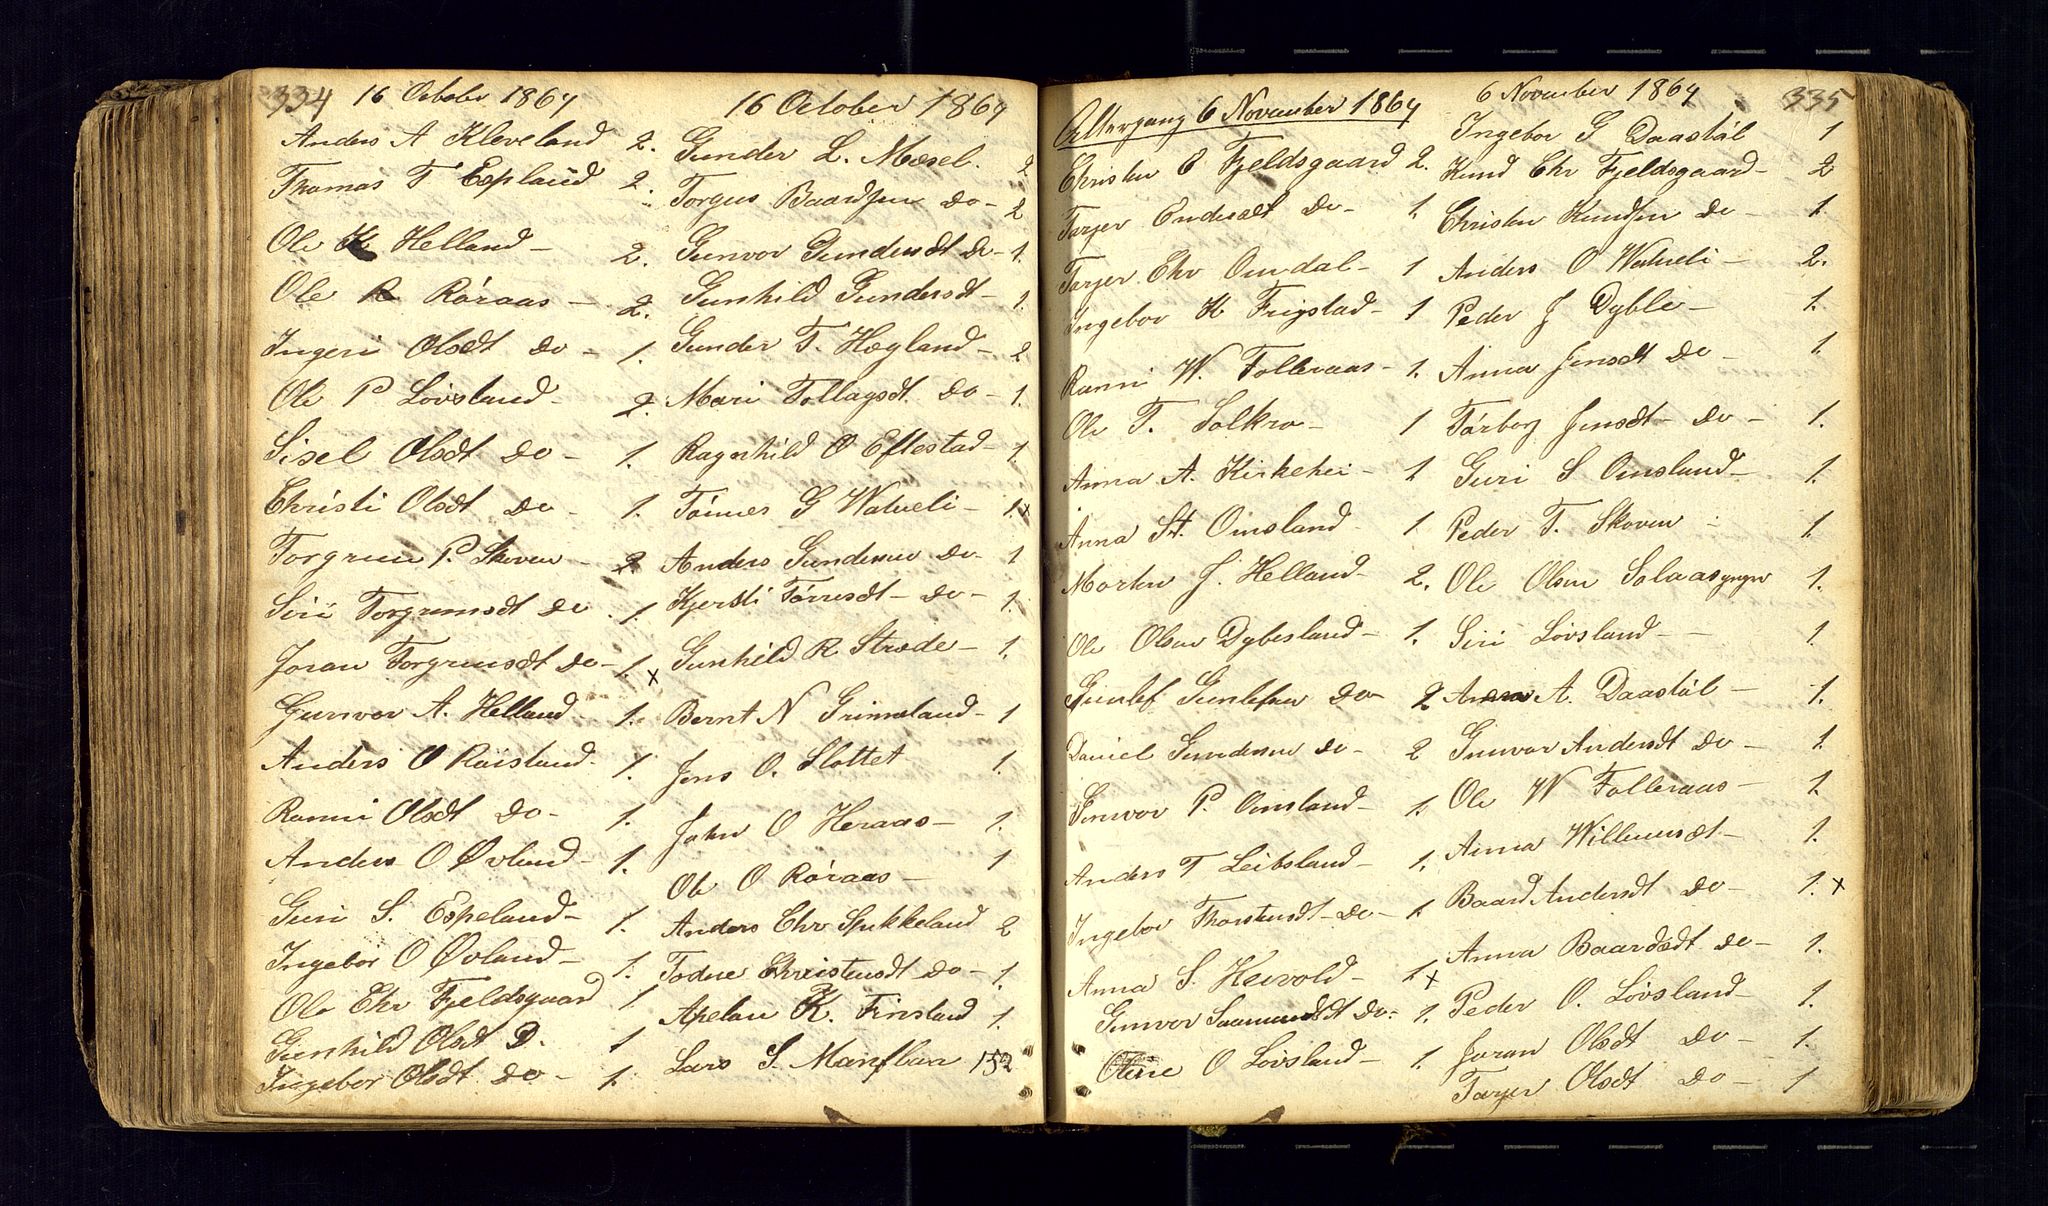 334 16 October 1864
Anders A Kleveland 2.
Thomas T Espeland 2.
Ole K Helland - 2.
Ole R Røraas - 2.
Ingeri Olsdt Do - 1.
Ole P Løvsland - 2.
Sisel Olsdt Do - 1.
Christi Olsdt Do - 1.
Torgrim P. Skoven - 2
Siri Torgrimsdt Do 1.
Joran Torgrimsdt Do - 1. x
Gunvor A. Helland - 1.
Anders O Røisland - 1.
Ranni Olsdt Do - 1.
Anders O Øvland - 1.
Guri S. Espeland - 1.
Ingebor O Øvland - 1.
Ole Chr Fjeldsgaard 1
Gunhild Olsdt D. 1
Ingebor Olsdt Do - 1.
16 October 1864
Gunder L. Mæsel. 2
Torgus Baardsen Do - 2
Gunvor Gundersdt Do - 1.
Gunhild Gundersdt - 1.
Gunder T. Høgland - 2
Mari Tollagsdt Do - 1.
Ragnhild O Eftestad - 1
Tønnes G Watneli - 1. x
Anders Gundersen Do - 1
Kjersti Tørresdt - Do - 1.
Gunhild R Stræde - 1.
Bernt N Grimsland - 1
Jens O. Slottet 1.
John O Heraas - 1.
Ole O Røraas - 1
Anders Chr Spikkeland 2
Todne Christensdt Do - 1.
Apelau K. Finsland 1.
Lars S. Mansflaa 152
Altergang 6 November 1864
Christen E Fjeldsgaard 2.
Tarjer Endresdt Do - 1.
Tarjer Chr Omdal - 1
Ingebor K Frigstad - 1
Ranni W. Folleraas - 1.
Ole T. Solkro - 1
Anna A. Kirkehei - 1.
Anna St. Omsland 1
Morten J. Helland - 2.
Ole Olsen Dybesland - 1.
Gunlef Gunlefsen Do - 2
Daniel Gundersen Do - 2
Gunvor P. Omsland - 1.
Anders T Leibsland - 1.
Ingebor Thorstensdt - Do - 1
Anna S. Heivold - 1. x
Gunvor Saamundsdt Do - 1.
Oline O Løvsland - 1.
6 November 1864 335
Ingebor G Daastøl 1
Knud Chr Fjeldsgaard - 2
Christen Knudsen Do - 1.
Anders O Watneli - 2.
Peder J Dyble - 1.
Anna Jensdt Do - 1.
Tørbor Jensdt - Do - 1.
Guri S Omsland - 1.
Peder T. Skoven - 1.
Ole Olsen Solaas yngre 1.
Siri Løvsland - 1.
A. Daastøl - 1.
Gunvor Andersdt Do - 1.
Ole W Folleraas - 1.
Anna Willumsdt - 1.
Baard Andersdt Do - 1. x
Anna Baardsdt Do - 1.
Peder O. Løvsland - 1.
Joran Olsdt Do - 1.
Tarjer Olsdt Do - 1